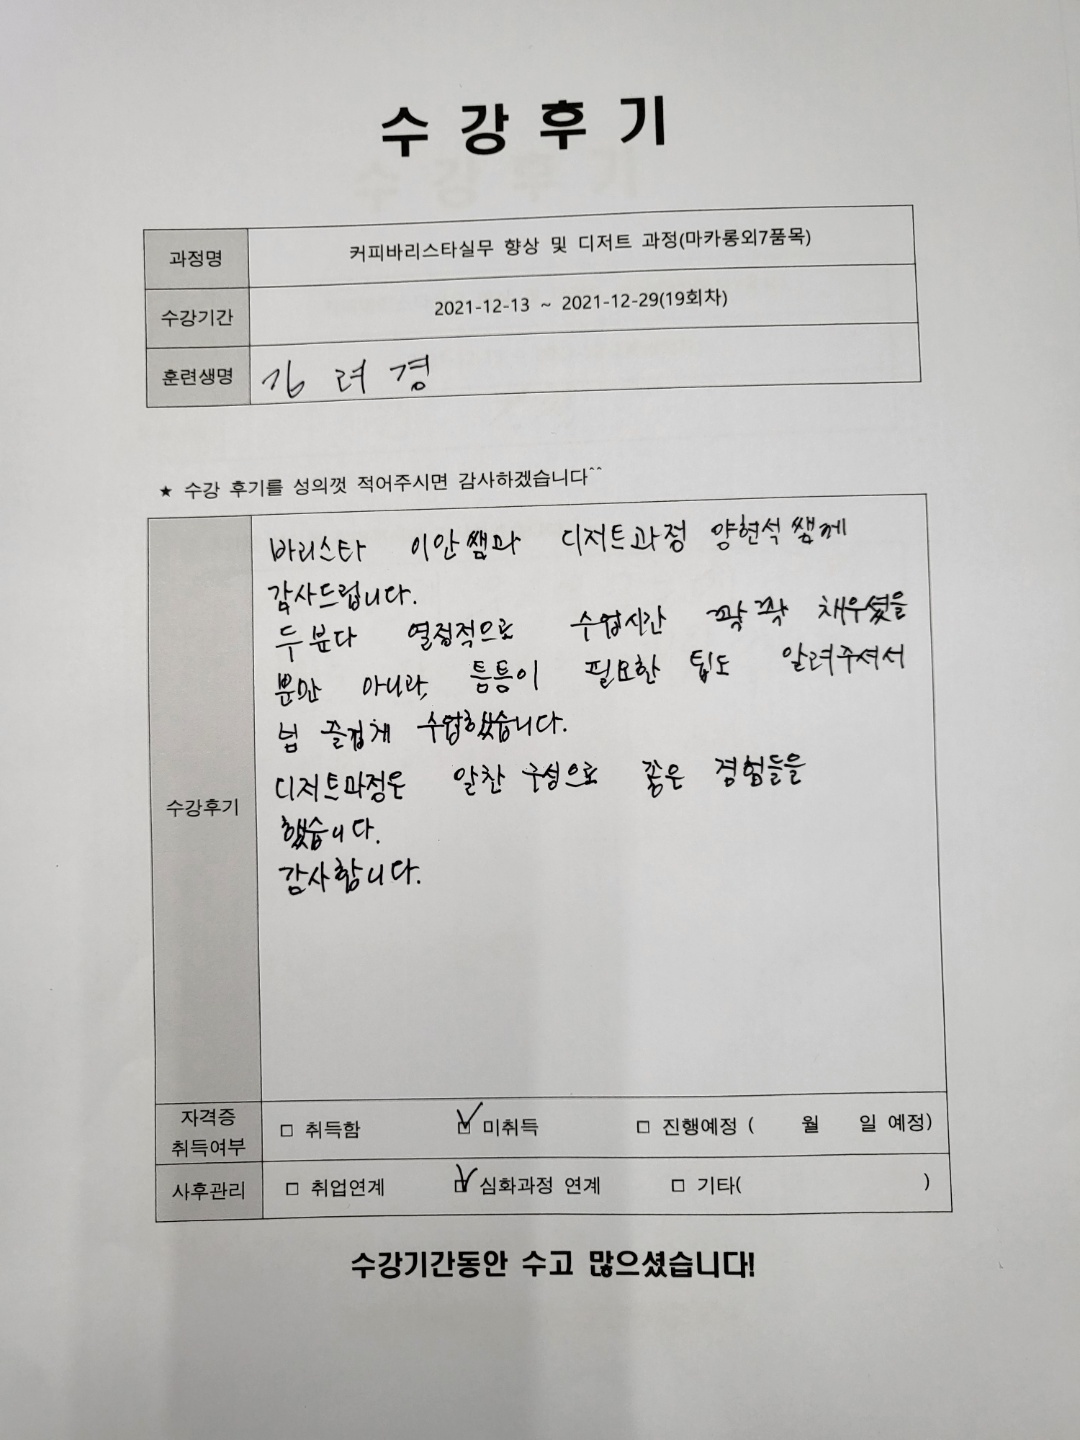 수강후기
과정명 커피바리스타실무 향상 및 디저트 과정(마카롱외7품목)
수강기간 2021-12-13 ~ 2021-12-29(19회차)
훈련생명 김려경
★ 수강 후기를 성의껏 적어주시면 감사하겠습니다^^
수강후기
바리스타 이안쌤과 디저트과정 양현석쌤께
감사드립니다.
두분다 열정적으로 수업시간 꽉꽉 채우셨을
뿐만 아니라, 틈틈이 필요한 팁도 알려주셔서
넘 즐겁게 수업했습니다.
디저트과정은 알찬 구성으로 좋은 경험들을
했습니다.
감사합니다.
자격증
취득여부 □ 취득함 ☑ 미취득 □ 진행예정 ( 월 일 예정)
사후관리 □ 취업연계 ☑ 심화과정 연계 □ 기타( )
수강기간동안 수고 많으셨습니다!